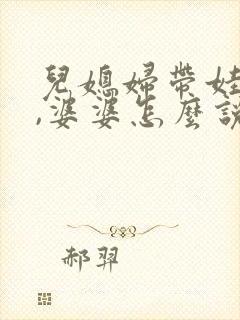 兒媳婦帶娃
,婆婆怎麼說
郝羿